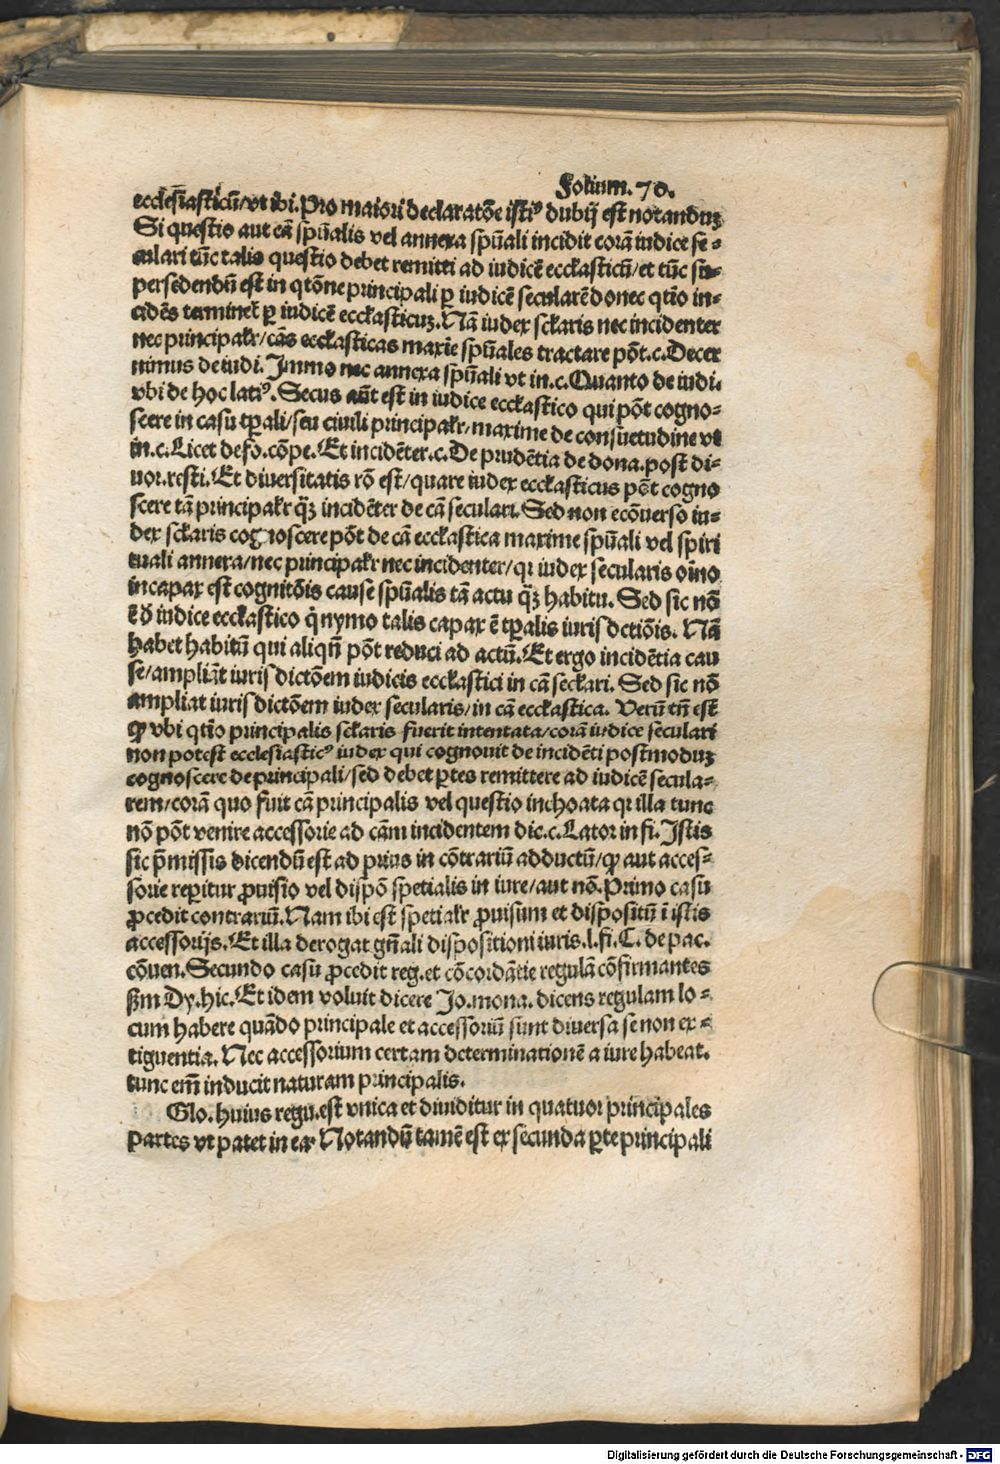 Folium. 70.
ecclesiasticū/vt ibi. Pro maiori declaratōe istiꝰ dubij est notanduꝫ
Si questio aut cā spūalis vel annexa spūali incidit corā iudice se⸗
culari tūc talis questio debet remitti ad iudicē eccl'asticū/et tūc su⸗
persedendū est in qtōne principali ꝑ iudicē secularē donec qtio in⸗
cidēs terminet̄ ꝑ iudicē eccl'asticuꝫ. Nā iudex scl'aris nec incidenter
nec principalr̄/cās eccl'asticas maxīe spūales tractare pōt. c. Decer
nimus de iudi. Immo nec annexa spūali vt in. c. Quanto de iudi.
vbi de hoc latiꝰ. Secus aūt est in iudice eccl'astico qui pōt cogno⸗
scere in casu tꝑali/seu ciuili principalr̄/maxime de consuetudine vt
in. c. Licet de fo. cōpe. Et incidēter. c. De prudētia de dona. post di⸗
uor. resti. Et diuersitatis rō est/quare iudex eccl'asticus pōt cogno
scere tā principalr̄ q̄ꝫ incidēter de cā seculari. Sed non ecōuerso iu⸗
dex scl'aris cognoscere pōt de cā eccl'astica maxime spūali vel spiri
tuali annexa/nec principalr̄ nec incidenter/qꝛ iudex secularis oīno
incapax est cognitōis cause spūalis tā actu q̄ꝫ habitu. Sed sic nō
ē d̄ iudice eccl'astico q̇nymo talis capax ē tꝑalis iurisdctiōis. Nā
habet habitū qui aliqn̄ pōt reduci ad actū. Et ergo incidētia cau
se/ampliāt iurisdictōem iudicis eccl'astici in cā secl'ari. Sed sic nō
ampliat iurisdictōem iudex secularis/in cā eccl'astica. Verū tn̄ est
ꝙ vbi qtio principalis scl'aris fuerit intentata/corā iudice seculari
non potest ecclesiasticꝰ iudex qui cognouit de incidēti postmoduꝫ
cognoscere de principali/sed debet ꝑtes remittere ad iudicē secula⸗
rem/corā quo fuit cā principalis vel questio inchoata qꝛ illa tunc
nō pōt venire accessorie ad cām incidentem dic. c. Lator in fi. Istis
sic p̄missis dicendū est ad prius in cōtrariū adductū/ꝙ aut acces⸗
sorie reꝑitur ꝓuisio vel dispō spetialis in iure/aut nō. Primo casu
ꝓcedit contrariū. Nam ibi est spetialr̄ ꝓuisum et dispositū ī istis
accessorijs. Et illa derogat gn̄ali dispositioni iuris. l. fi. C. de pac.
cōuen. Secundo casu ꝓcedit reg. et cōcordātie regulā cōfirmantes
ẜm Dy. hic. Et idem voluit dicere Jo. mona. dicens regulam lo⸗
cum habere quādo principale et accessoriū sunt diuersa se non ex⸗
tiguentia. Nec accessorium certam determinationē a iure habeat.
tunc em̄ inducit naturam principalis.
Glo. huius regu. est vnica et diuiditur in quatuor principales
partes vt patet in ea. Notandū tamē est ex secunda ꝑte principali
Digitalisierung gefördert durch die Deutsche Forschungsgemeinschaft - DFG